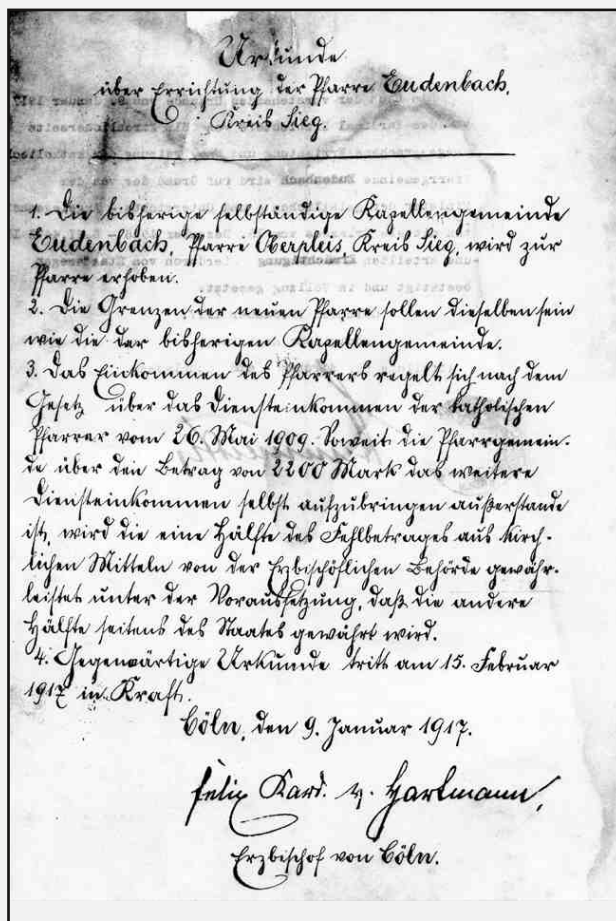 Urkunde
über Errichtung der Pfarre Eudenbach,
Kreis Sieg.
1. Die bisherige selbständige Kapellengemeinde
Eudenbach, Pfarre Oberpleis, Kreis Sieg, wird zur
Pfarre erhoben.
2. Die Grenzen der neuen Pfarre sollen dieselben sein
wie die der bisherigen Kapellengemeinde.
3. Das Einkommen des Pfarrers regelt sich nach dem
Gesetz über das Diensteinkommen der katholischen
Pfarrer vom 26. Mai 1909. Soweit die Pfarrgemein-
de über den Betrag von 2200 Mark das weitere
Diensteinkommen selbst aufzubringen außerstande
ist, wird die eine Hälfte des Fehlbetrages aus kirch-
lichen Mitteln von der Erzbischöflichen Behörde gewähr-
leistet unter der Voraussetzung, daß die andere
Hälfte seitens des Staates gewährt wird.
4. Gegenwärtige Urkunde tritt am 15. Februar
1917 in Kraft.
Cöln, den 9. Januar 1917.
Felix Kard. v. Hartmann,
Erzbischof von Cöln.